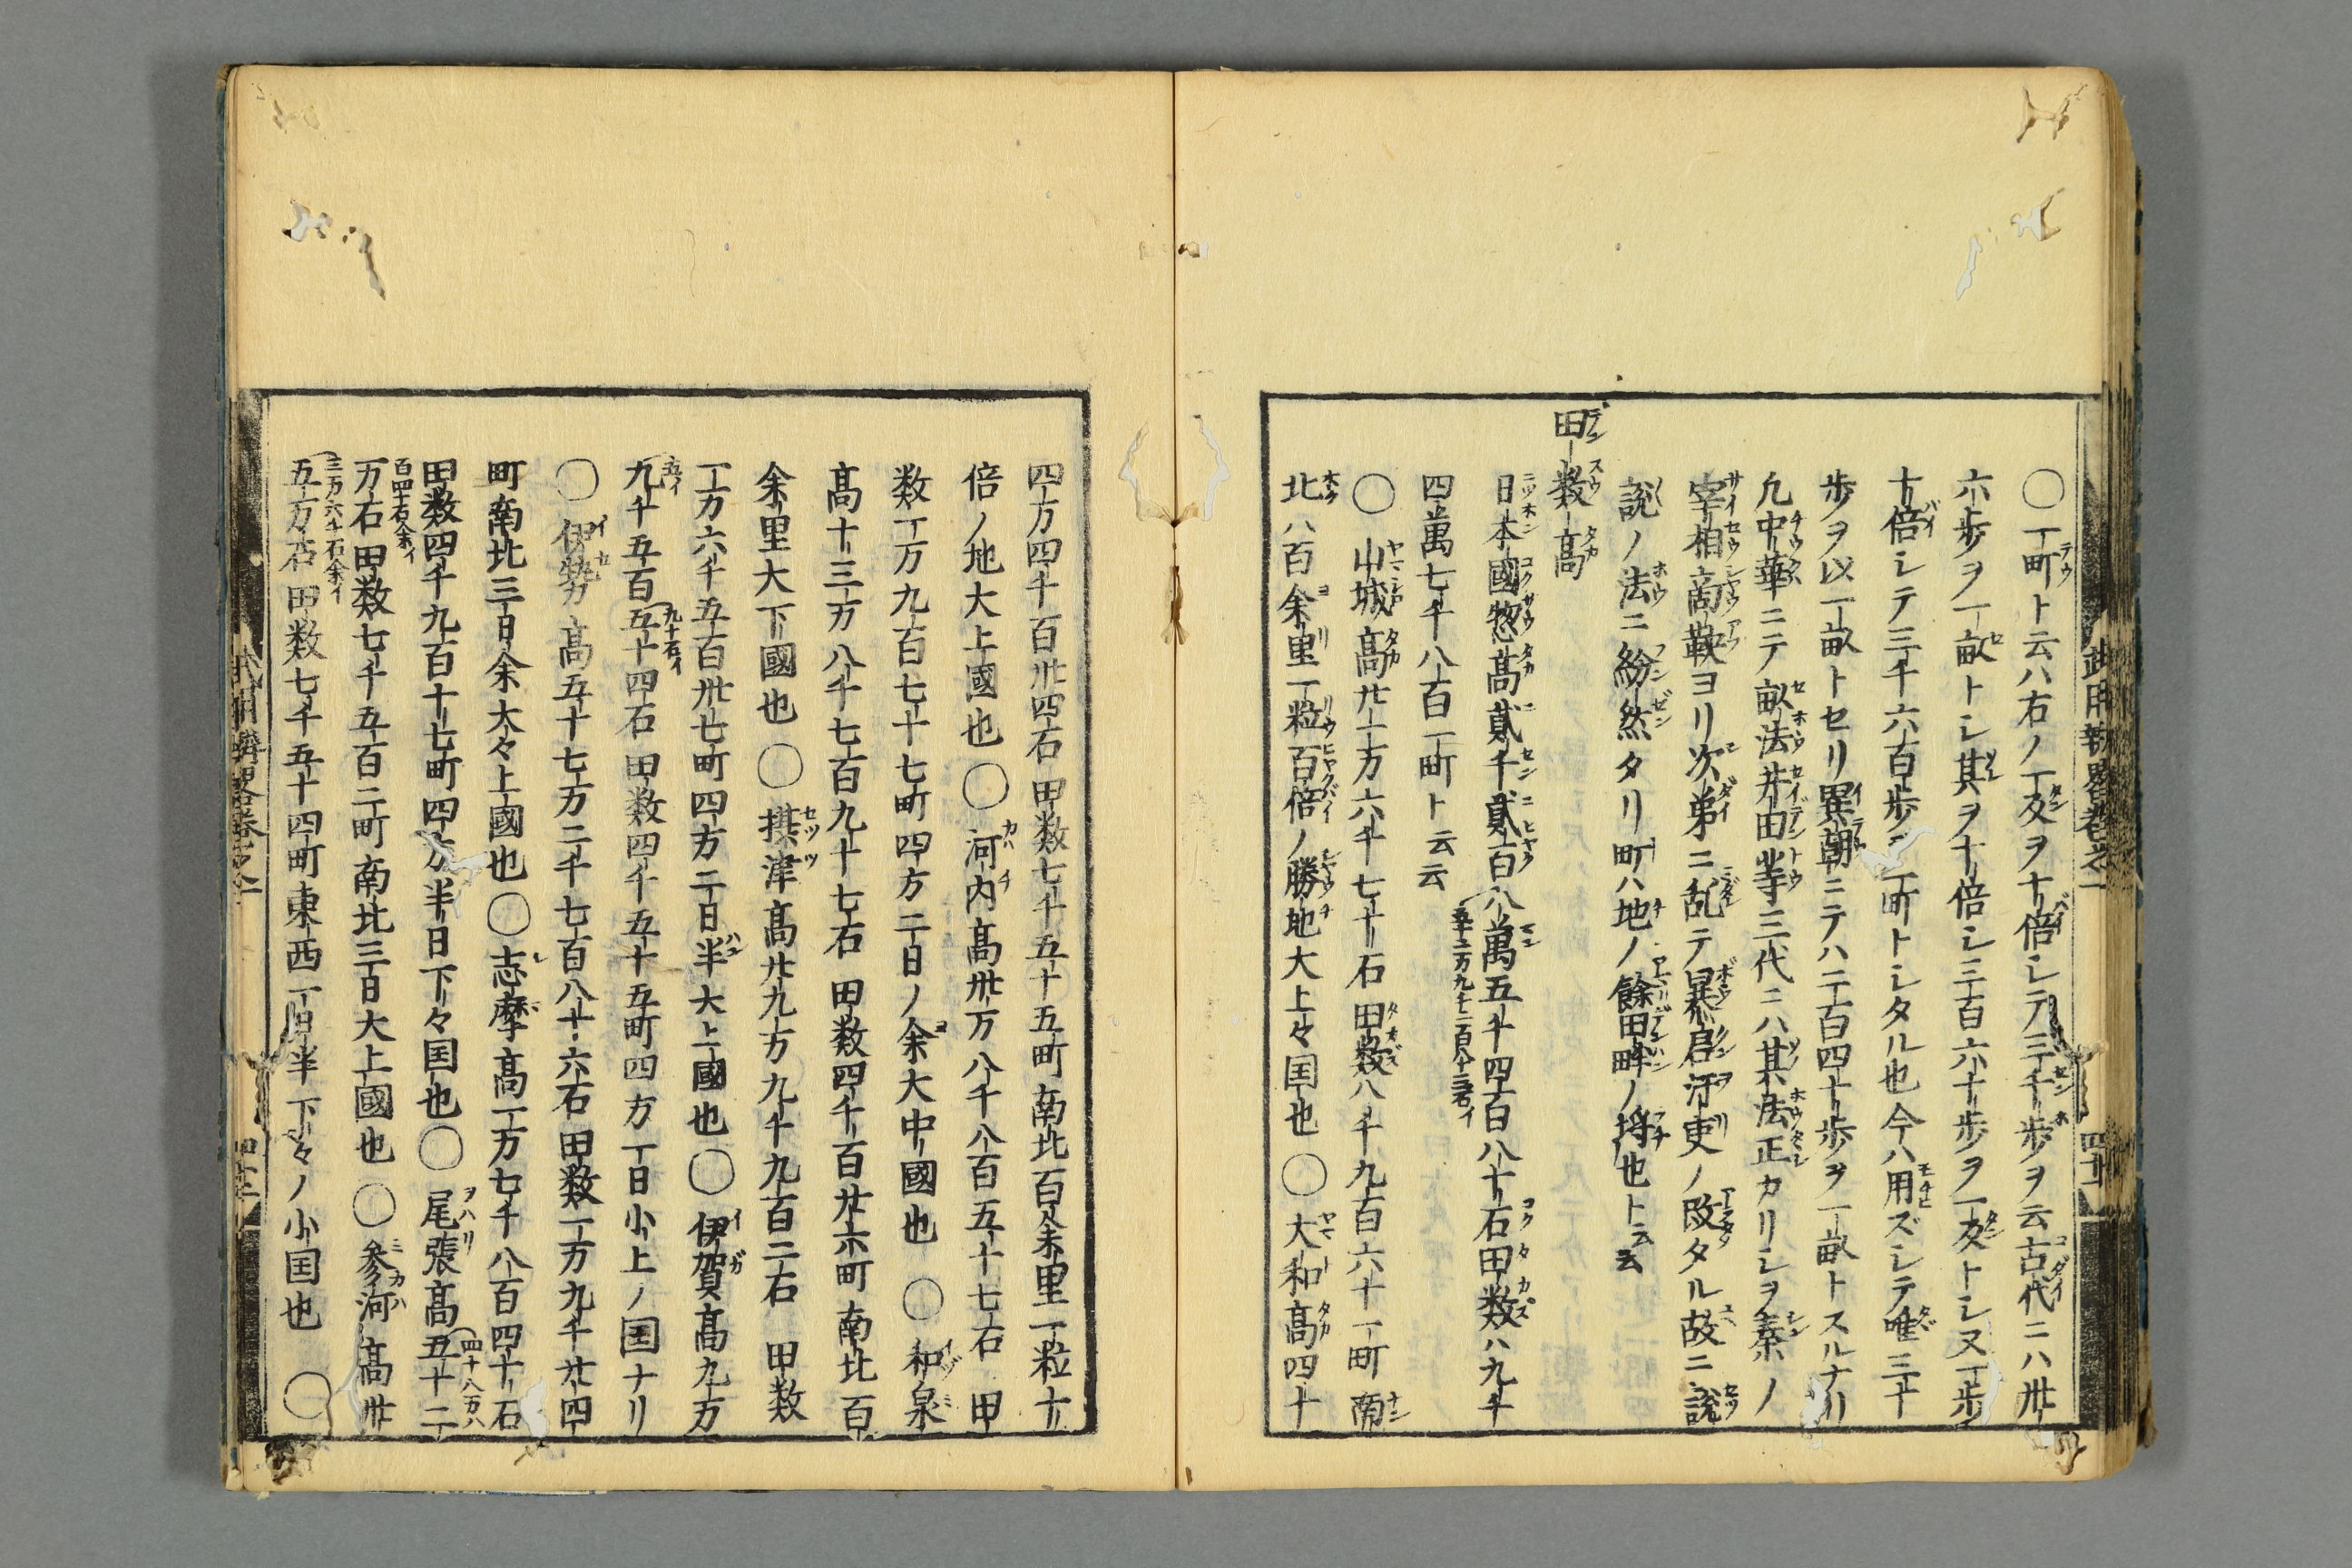 〇一町ト云ハ右ノ一反ヲ十倍シテ三千歩ヲ云古代ニハ卅
六歩ヲ一畝トシ其ヲ十倍シ三百六十歩ヲ一反トシ又一歩ヲ
十倍シテ三千六百歩ヲ一町トシタル也今ハ用ズシテ唯三十
歩ヲ以一畝トセリ異朝ニテハ二百四十歩ヲ一畝トスルナリ
凡中華ニテ畝法井田等三代ニハ其法正カリシヲ秦ノ
宰相商鞅ヨリ次弟ニ乱テ暴君汚吏ノ改タル故ニ説
説ノ法ニ紛然タリ町ハ地ノ餘田畔ノ埒也ト云云
田数高
日本國惣高貳千貳百八萬五千四百八十石田数ハ九千
四萬七千八百一町ト云云
〇山城高廿一万六千七十石田数八千九百六十一町南
北八百余里一粒百倍ノ勝地大上々国也〇大和高四十
四万四千百卅四石田数七千五十五町南北百余里一粒十
倍ノ地大上國也〇河内高卅万八千八百五十七石田
数一万九百七十七町四方二日ノ余大中國也〇和泉
高十三万八千七百九十七石田数四千百廿六町南北百
余里大下國也〇摂津高廿九万九千九百二石田数
一万六千五百卅七町四方二日半大上國也〇伊賀高九万
九千五百五十四石田数四千五十五町四方一日小上ノ国ナリ
五イ
九十石イ
〇伊勢高五十七万二千七百八十六石田数一万九千廿四
町南北三日余大々上國也〇志摩高一万七千八百四十石
田数四千九百十七町四方半日下々国也〇尾張高五十二
四十八万八
百四十石余イ
万石田数七千五百二町南北三日大上國也〇参河高卅
三万六千石余イ
五万石田数七千五十四町東西一日半下々ノ小国也〇